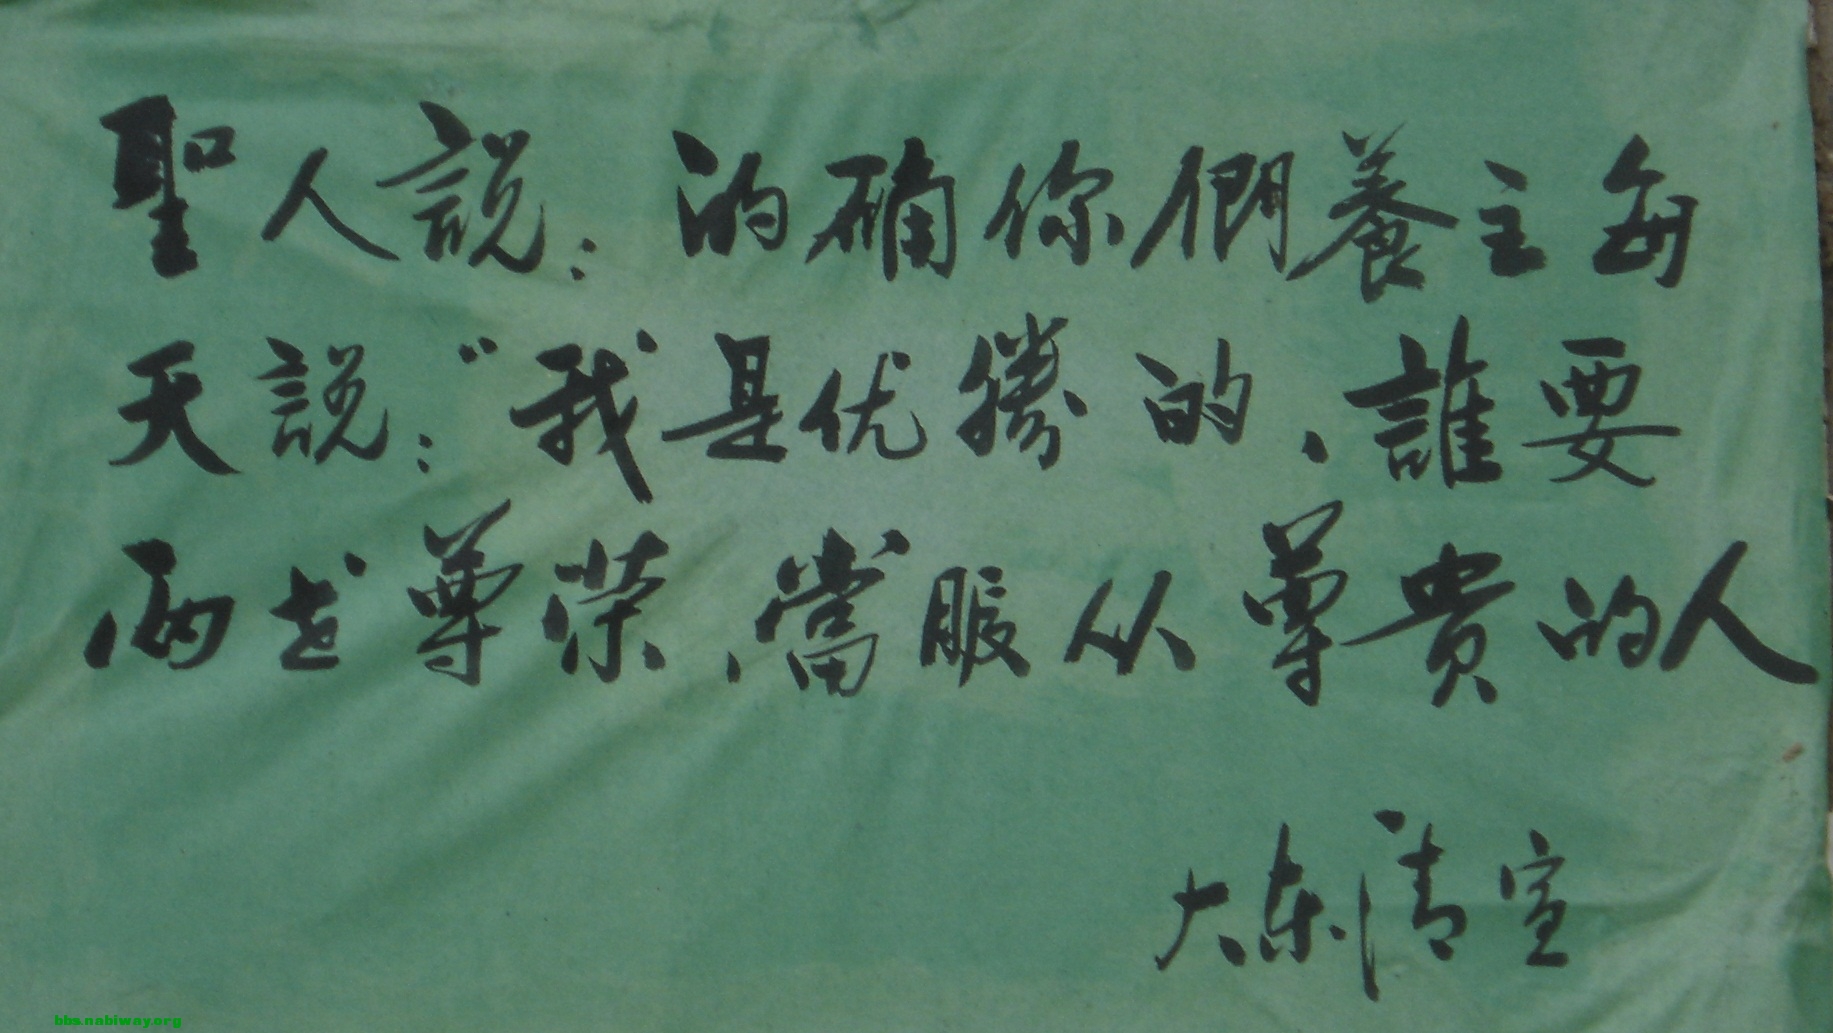 聖人説：的确你們養主每
天説：“我是优勝的，誰要
兩世尊荣，當服从尊貴的人
大东清宣
bbs.nabiway.org